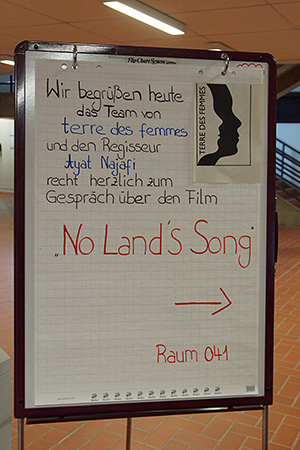 Flip Chart System 2000
Wir begrüßen heute
das Team von
terre des femmes
und den Regisseur
Ayat Najafi
recht herzlich zum
Gespräch über den Film
„No Land's Song"
Raum 041
TERRE DES FEMMES